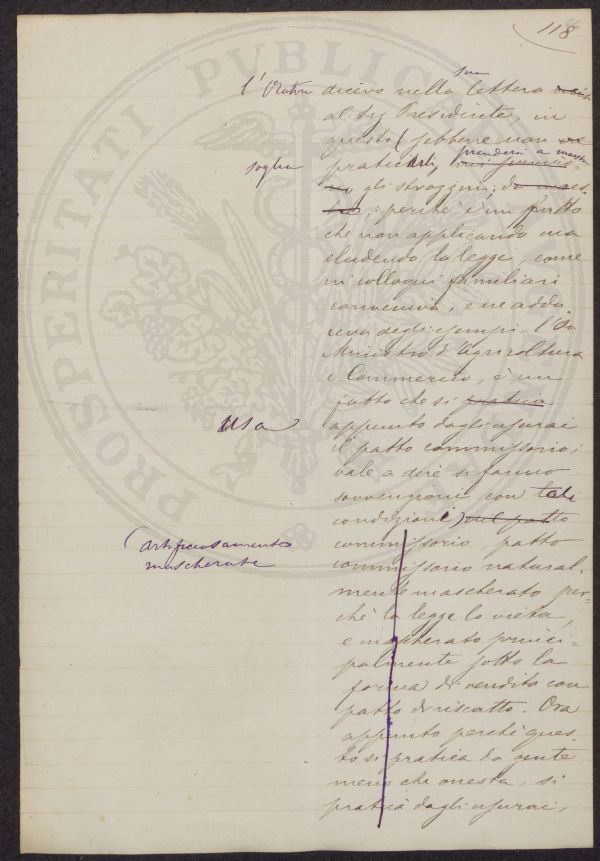 118
sua
l'Oratore dicevo nella lettera
al Sig Presidente, in
questo (sebbene non
praticarli, prendersi a maestri
soglia
gli strozzini; da maes
tro; perchè è un fatto
che non applicando ma
eludendo la legge, come
in colloqui familiari
conveniva, e ne addu
ceva degli esempi l'On
Ministro d'Agricoltura
e Commercio, è un
fatto che si pratica
usa
appunto dagli usurai
il patto commissorio;
vale a dire si fanno
sovvenzioni con tali
condizioni) del patto
(artificiosamente
mascherate
commissorio, patto
commissorio natural-
mente mascherato per-
chè la legge lo vieta,
e mascherato princi-
palmente sotto la
forma di vendita con
patto di riscatto. Ora
appunto perchè ques-
to si pratica da gente
meno che onesta, si
pratica dagli usurai,
PROSPERITATI PVBLICAE